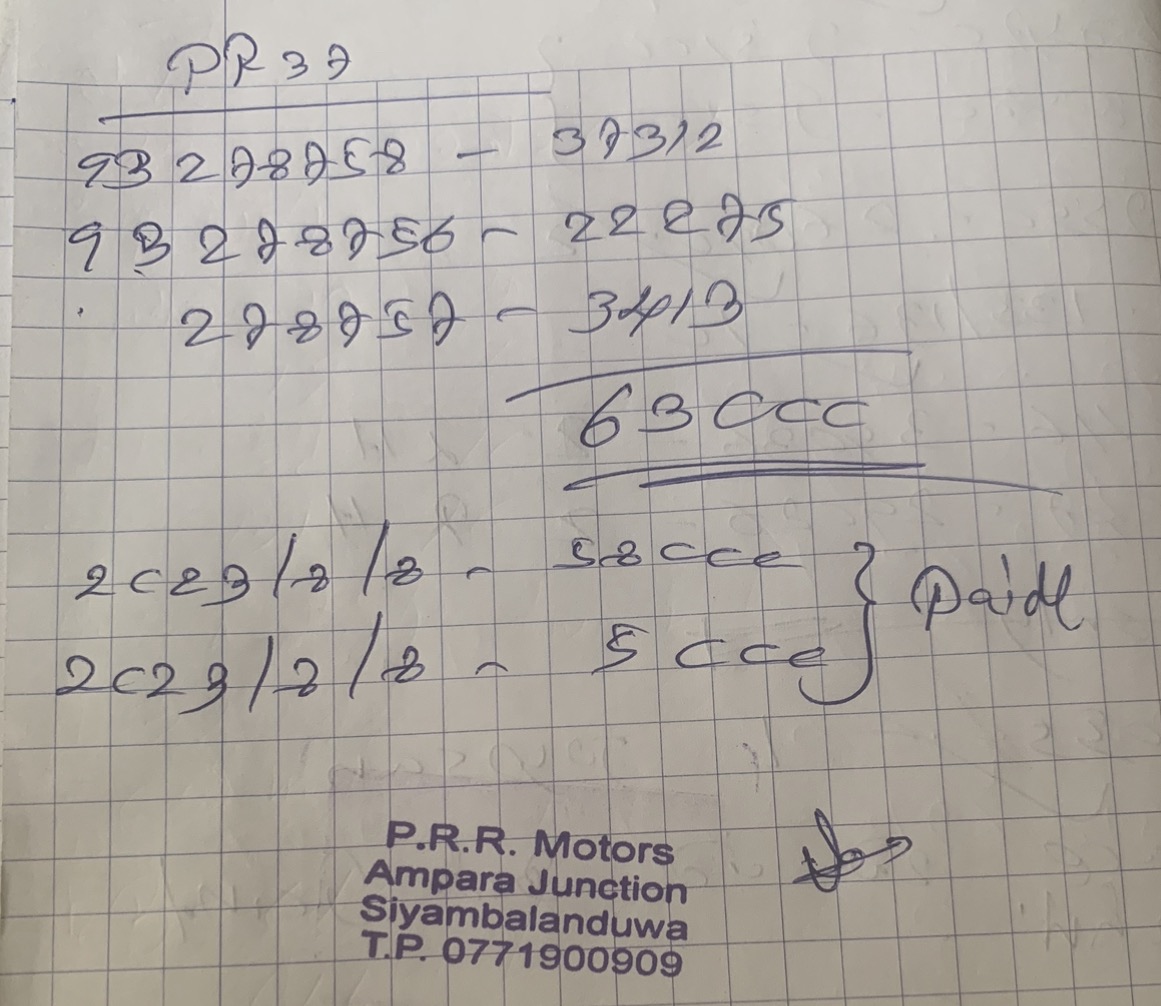 PR 37
93 278758 - 37312
93 278756 - 22275
278757 - 3413
63000
2023/8/8 - 58000
2023/8/8 - 5000 } Paid
P.R.R. Motors
Ampara Junction
Siyambalanduwa
T.P. 0771900909